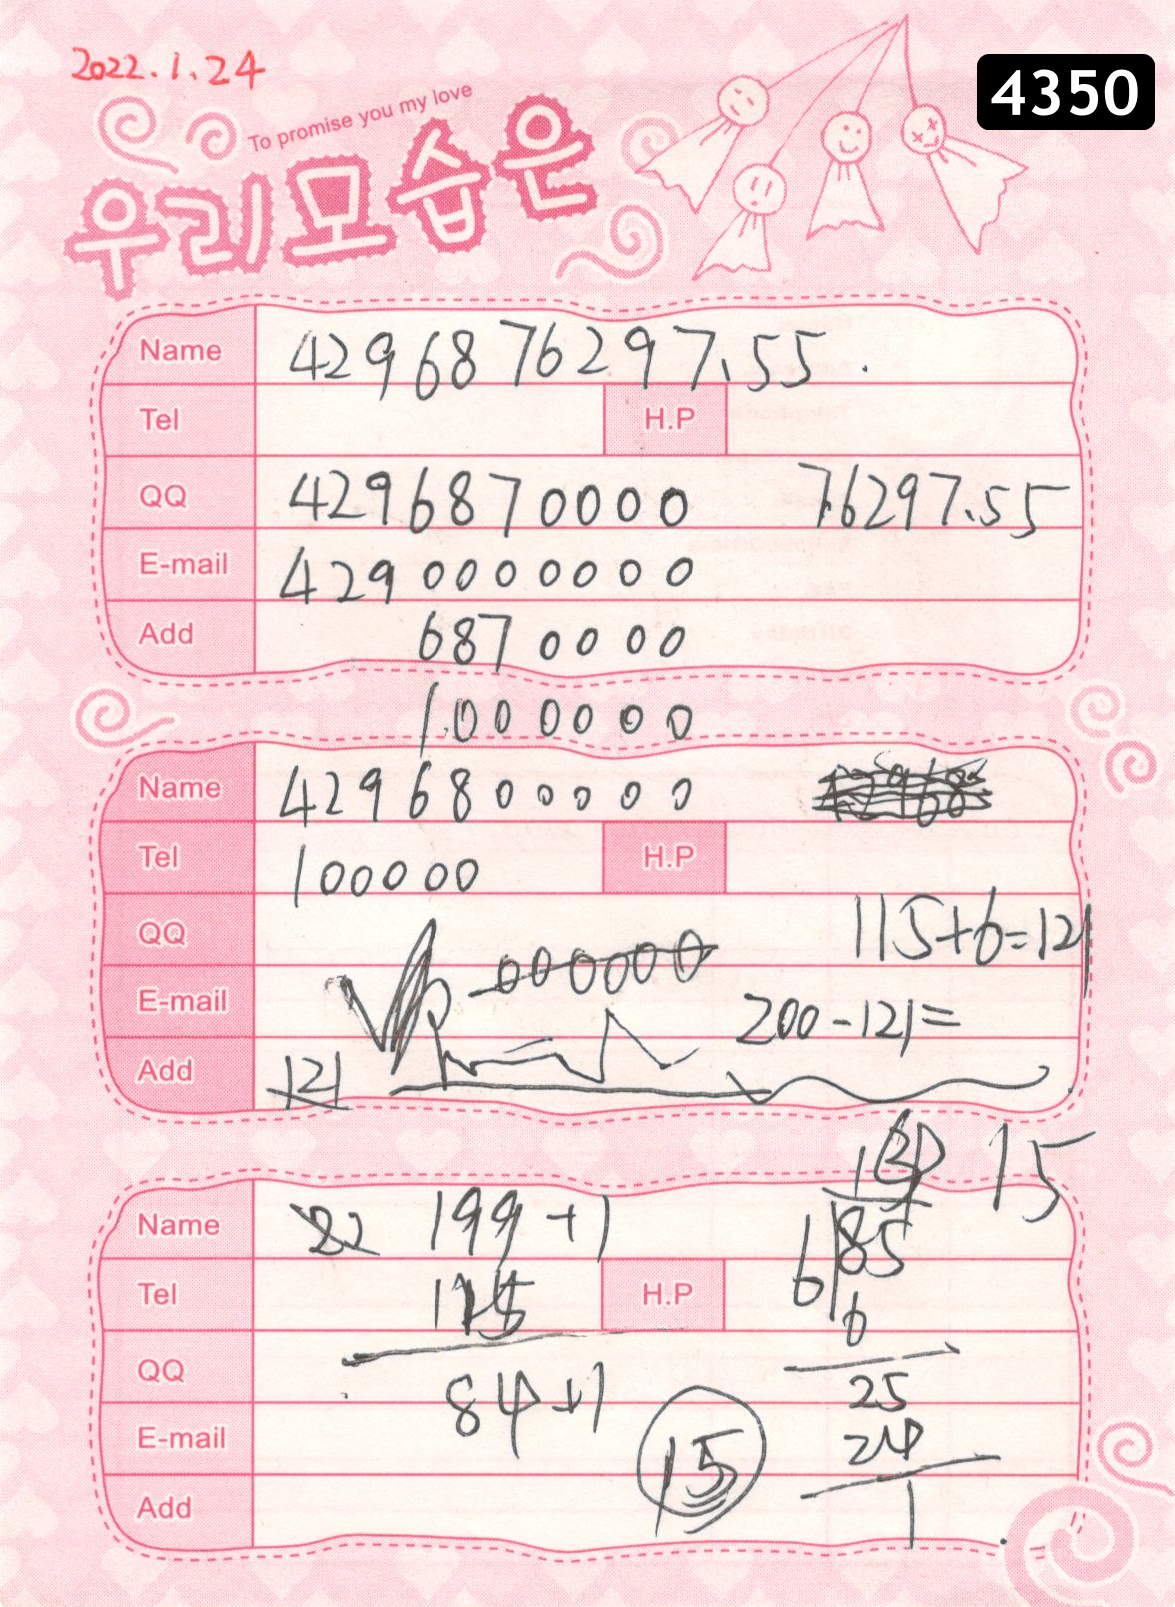 2022.1.24
4350
To promise you my love
우리모습은
Name 42968 76297.55
Tel H.P
QQ 4296870000 76297.55
E-mail 4290000000
Add 6870000
1000000
Name 4296800000
Tel 100000 H.P
QQ 115+6=121
000000
E-mail 200-121=
Add 121
15
Name 82 199+1 6 85
Tel 115 H.P
6
QQ 84+1 25
E-mail 15 24
Add 1